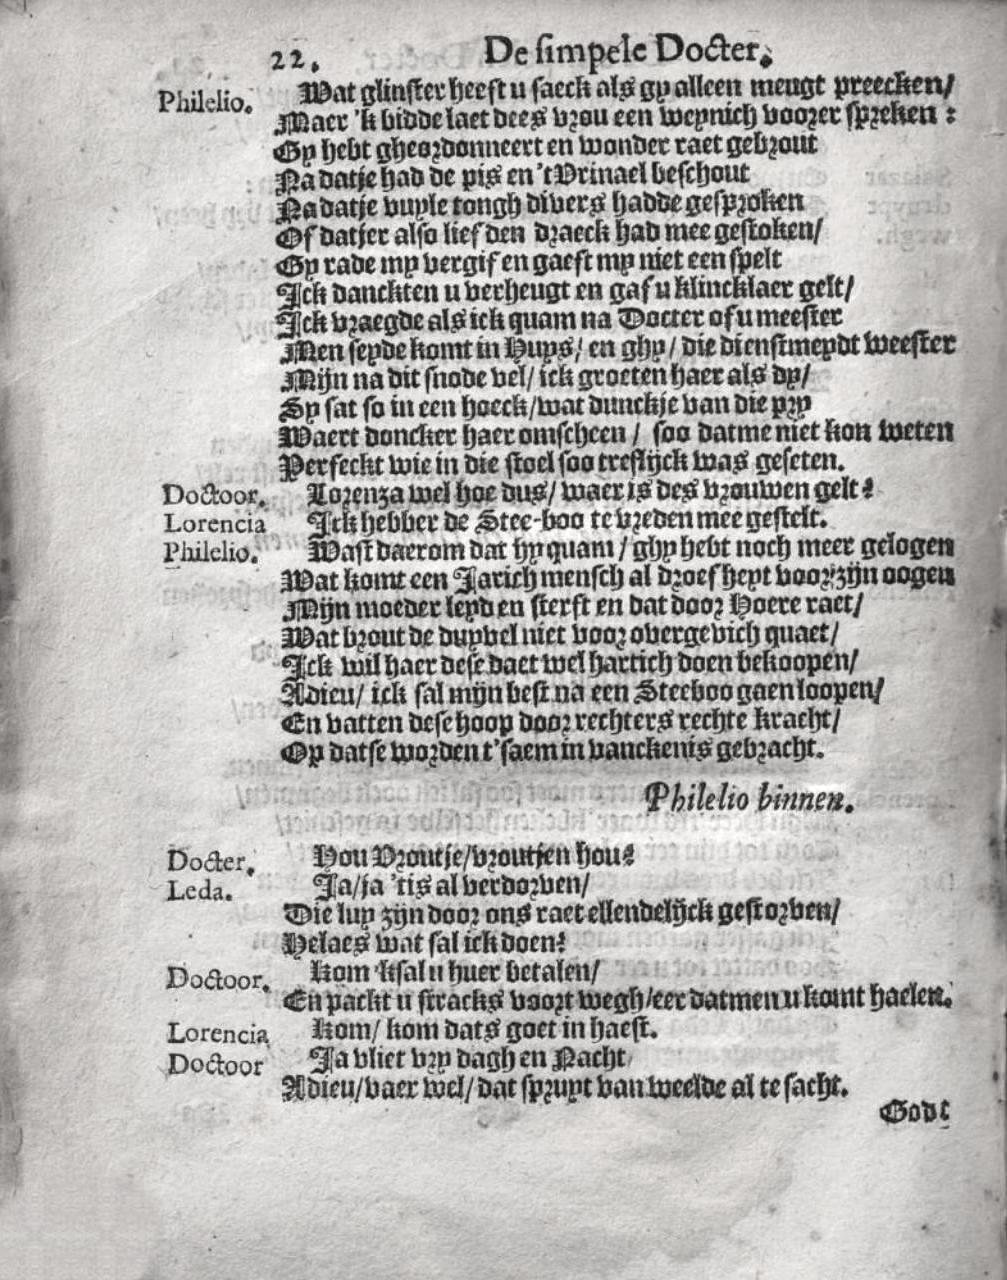 22. De simpele Docter.
Philelio. Wat glinster heeft u saeck als gy alleen meugt preecken/
Maer 'k bidde laet dees vrou een weynich voorer spreken:
Gy hebt gheordonneert en wonder raet gebrout
Na datje had de pis en 't Vrinael beschout
Na datje vuyle tongh divers hadde gesproken
Of datjer also lief den draeck had mee gestoken/
Gy rade my vergif en gaest my niet een spelt
Ick danckten u verheugt en gaf u klincklaer gelt/
Ick vraegde als ick quam na Docter of u meester
Men seyde komt in Huys/ en ghy/ die dienstmeydt weester
Mijn na dit snode vel/ ick groeten haer als dy/
Sy sat so in een hoeck/ wat dunckje van die pry
Waert doncker haer omscheen/ soo datme niet kon weten
Perfeckt wie in die stoel soo treflijck was geseten.
Doctoor. Lorenza wel hoe dus/ waer is des vrouwen gelt?
Lorencia Ick hebber de Stee-boo te vreden mee gestelt.
Philelio. Wast daerom dat hy quam/ ghy hebt noch meer gelogen
Wat komt een Jarich mensch al droefheyt voor zijn oogen
Mijn moeder leyd en sterft en dat door Hoere raet/
Wat brout de duyvel niet voor overgevich quaet/
Ick wil haer dese daet wel hartich doen bekoopen/
Adieu/ ick sal mijn best na een Steeboo gaen loopen/
En vatten dese hoop door rechters rechte kracht/
Op datse worden t'saem in vanckenis gebracht.
Philelio binnen.
Docter. Hou Vroutje/ vroutjen hou?
Leda. Ja/ ja 'tis al verdorven/
Die luy zijn door ons raet ellendelijck gestorven/
Helaes wat sal ick doen?
Doctoor. Kom 'ksal u huer betalen/
En packt u stracks voort wegh/ eer datmen u komt haelen.
Lorencia Kom/ kom dats goet in haest.
Doctoor Ja vliet vry dagh en Nacht/
Adieu/ vaer wel/ dat spruyt van weelde al te sacht.